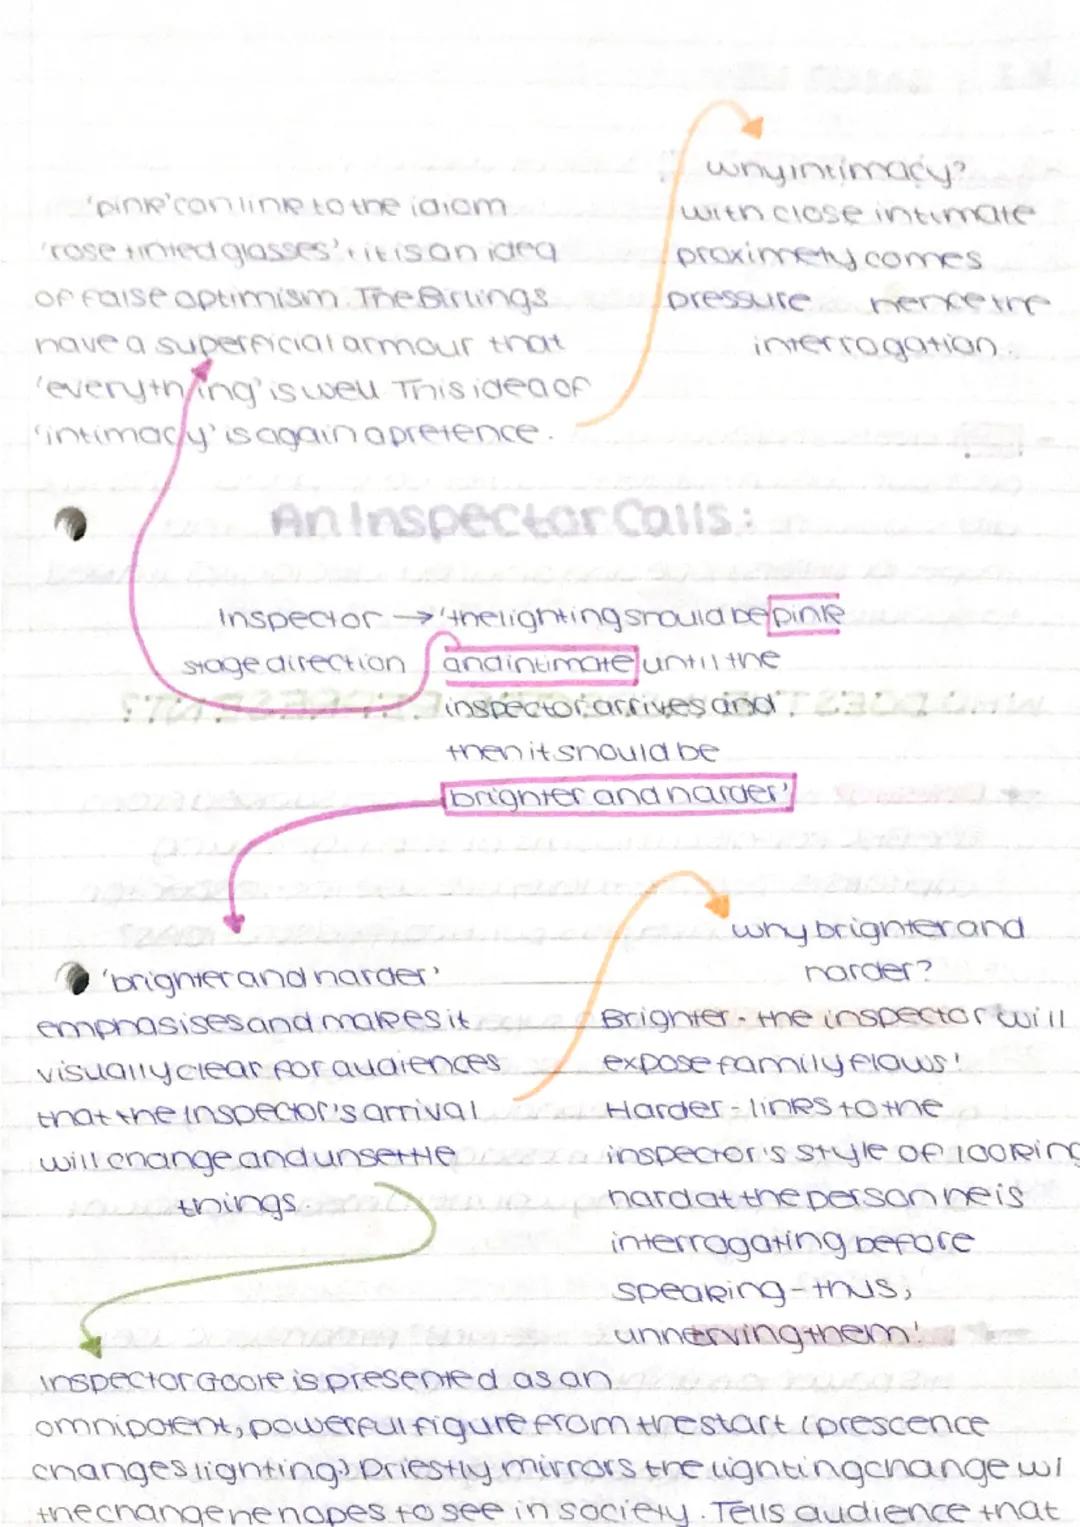 why intimacy?
with close intimate
proximety comes
pressure hence the
interrogation.
'pink' can link to the idiom
'rose tinted glasses', it is an idea
of false optimism. The Birlings
have a superficial armour that
'everything' is well. This idea of
'intimacy' is again a pretence.
An Inspector Calls:
Inspector → 'the lighting should be pink
stage direction and intimate until the
inspector arrives and
then it should be
brighter and harder'
'brighter and harder'
emphasises and makes it
visually clear for audiences
that the Inspector's arrival
will change and unsettle
things.
why brighter and
harder?
Brighter - the inspector will
expose family flaws!
Harder - links to the
inspector's style of looking
hard at the person he is
interrogating before
speaking - thus,
unnerving them!
Inspector Goole is presented as an
omnipotent, powerful figure from the start (prescence
changes lighting) Priestly mirrors the lighting change w/
the change he hopes to see in society. Tells audience that